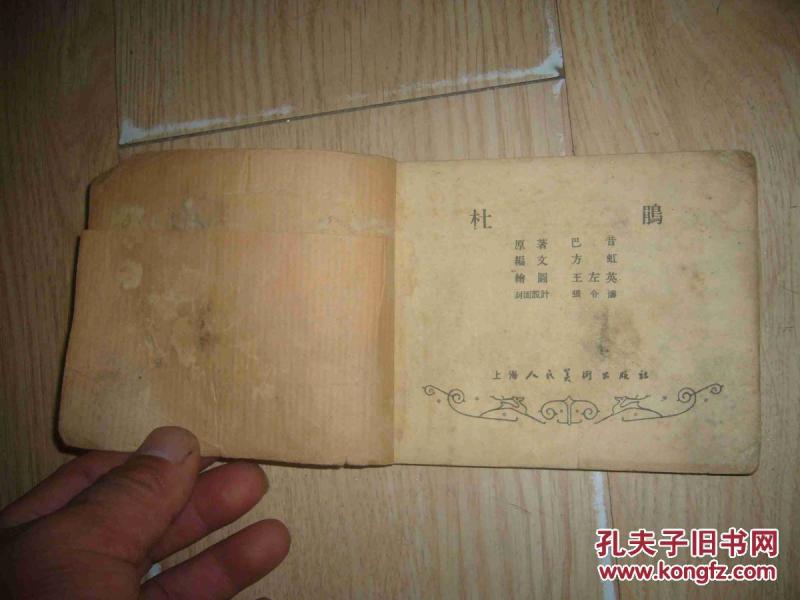 杜鵑
原著 巴昔
編文 方虹
繪圖 王左英
封面設計 張令濤
上海人民美術出版社
孔夫子旧书网
www.kongfz.com